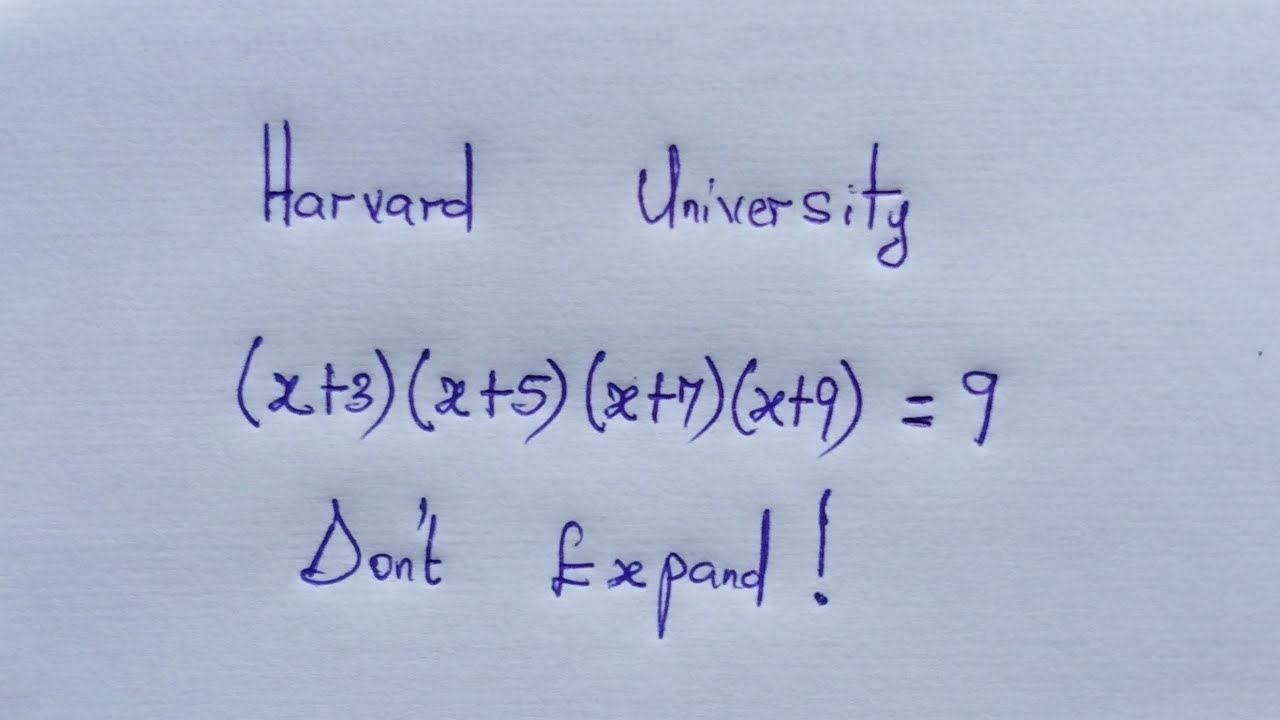 Harvard University
(x+3)(x+5)(x+7)(x+9) = 9
Don't Expand!